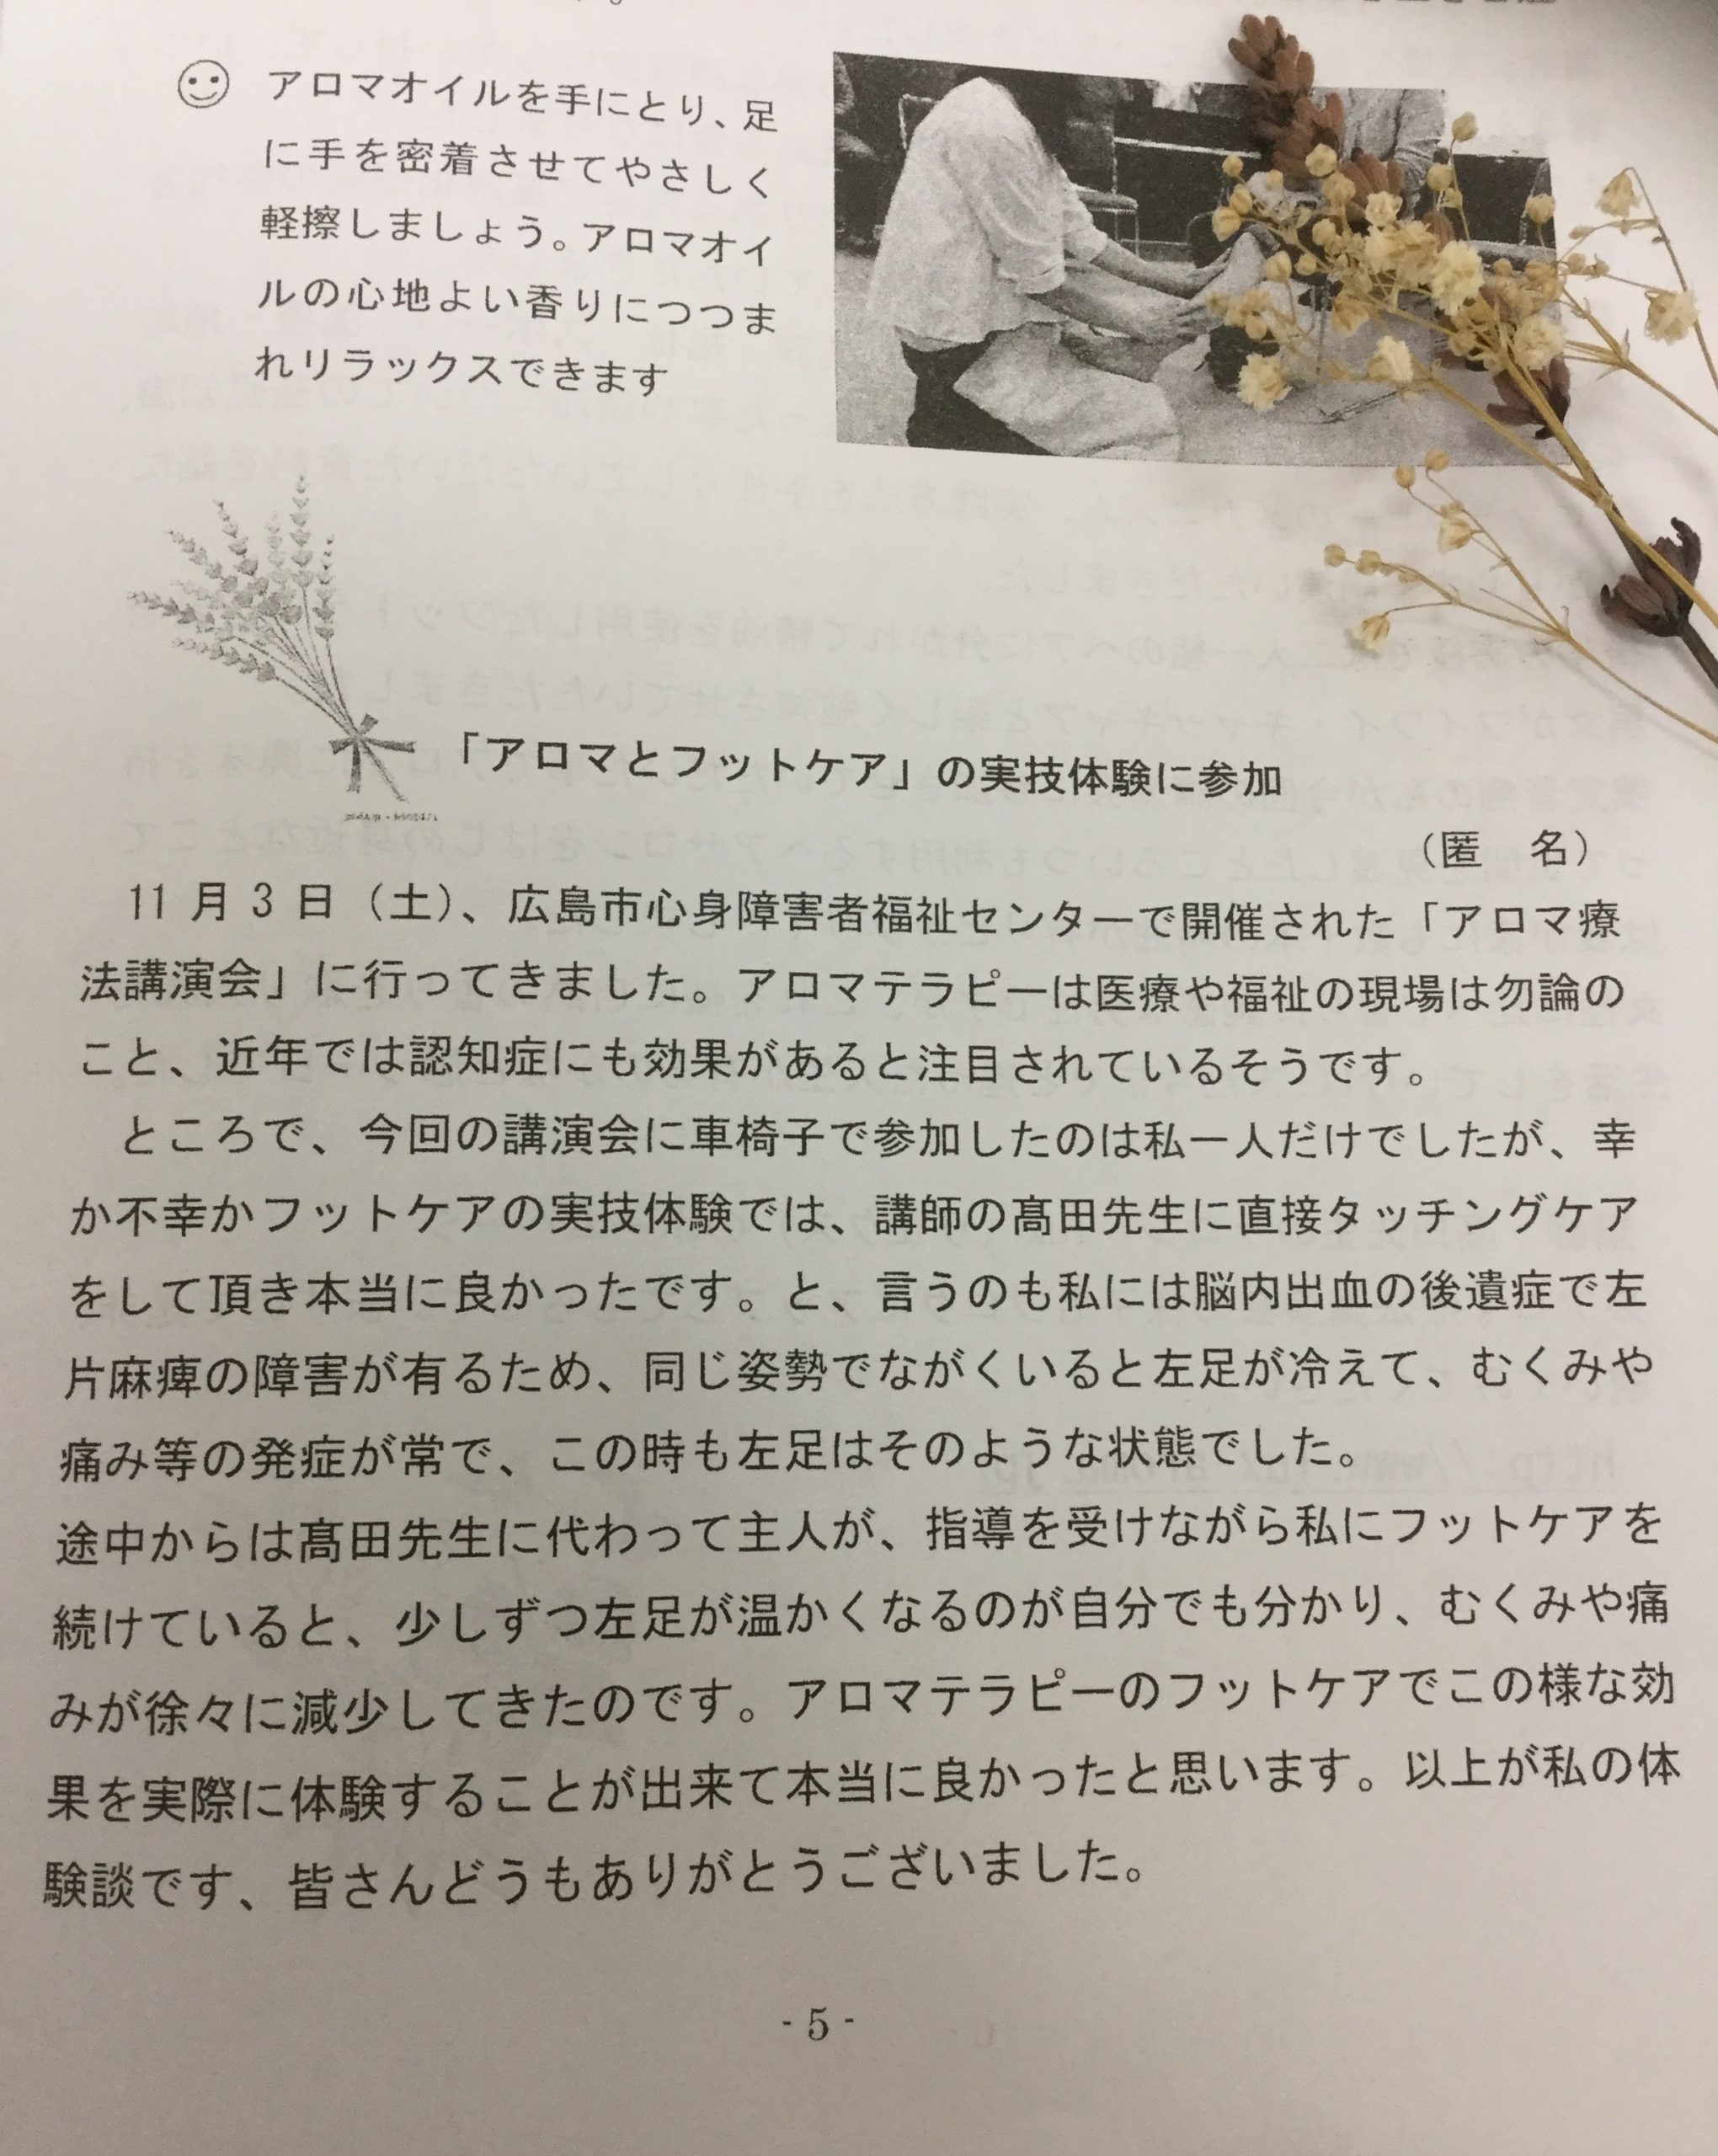 アロマオイルを手にとり、足
に手を密着させてやさしく
軽擦しましょう。アロマオイ
ルの心地よい香りにつつま
れリラックスできます
「アロマとフットケア」の実技体験に参加
（匿　名）
11 月 3 日（土）、広島市心身障害者福祉センターで開催された「アロマ療
法講演会」に行ってきました。アロマテラピーは医療や福祉の現場は勿論の
こと、近年では認知症にも効果があると注目されているそうです。
ところで、今回の講演会に車椅子で参加したのは私一人だけでしたが、幸
か不幸かフットケアの実技体験では、講師の髙田先生に直接タッチングケア
をして頂き本当に良かったです。と、言うのも私には脳内出血の後遺症で左
片麻痺の障害が有るため、同じ姿勢でながくいると左足が冷えて、むくみや
痛み等の発症が常で、この時も左足はそのような状態でした。
途中からは髙田先生に代わって主人が、指導を受けながら私にフットケアを
続けていると、少しずつ左足が温かくなるのが自分でも分かり、むくみや痛
みが徐々に減少してきたのです。アロマテラピーのフットケアでこの様な効
果を実際に体験することが出来て本当に良かったと思います。以上が私の体
験談です、皆さんどうもありがとうございました。
- 5 -